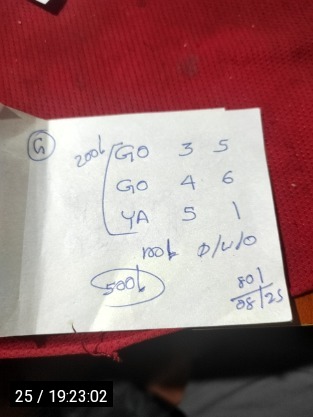 G
200/-
GO 3 5
GO 4 6
YA 5 1
100/- D/W/O
500/-
801
08/25
25 / 19:23:02